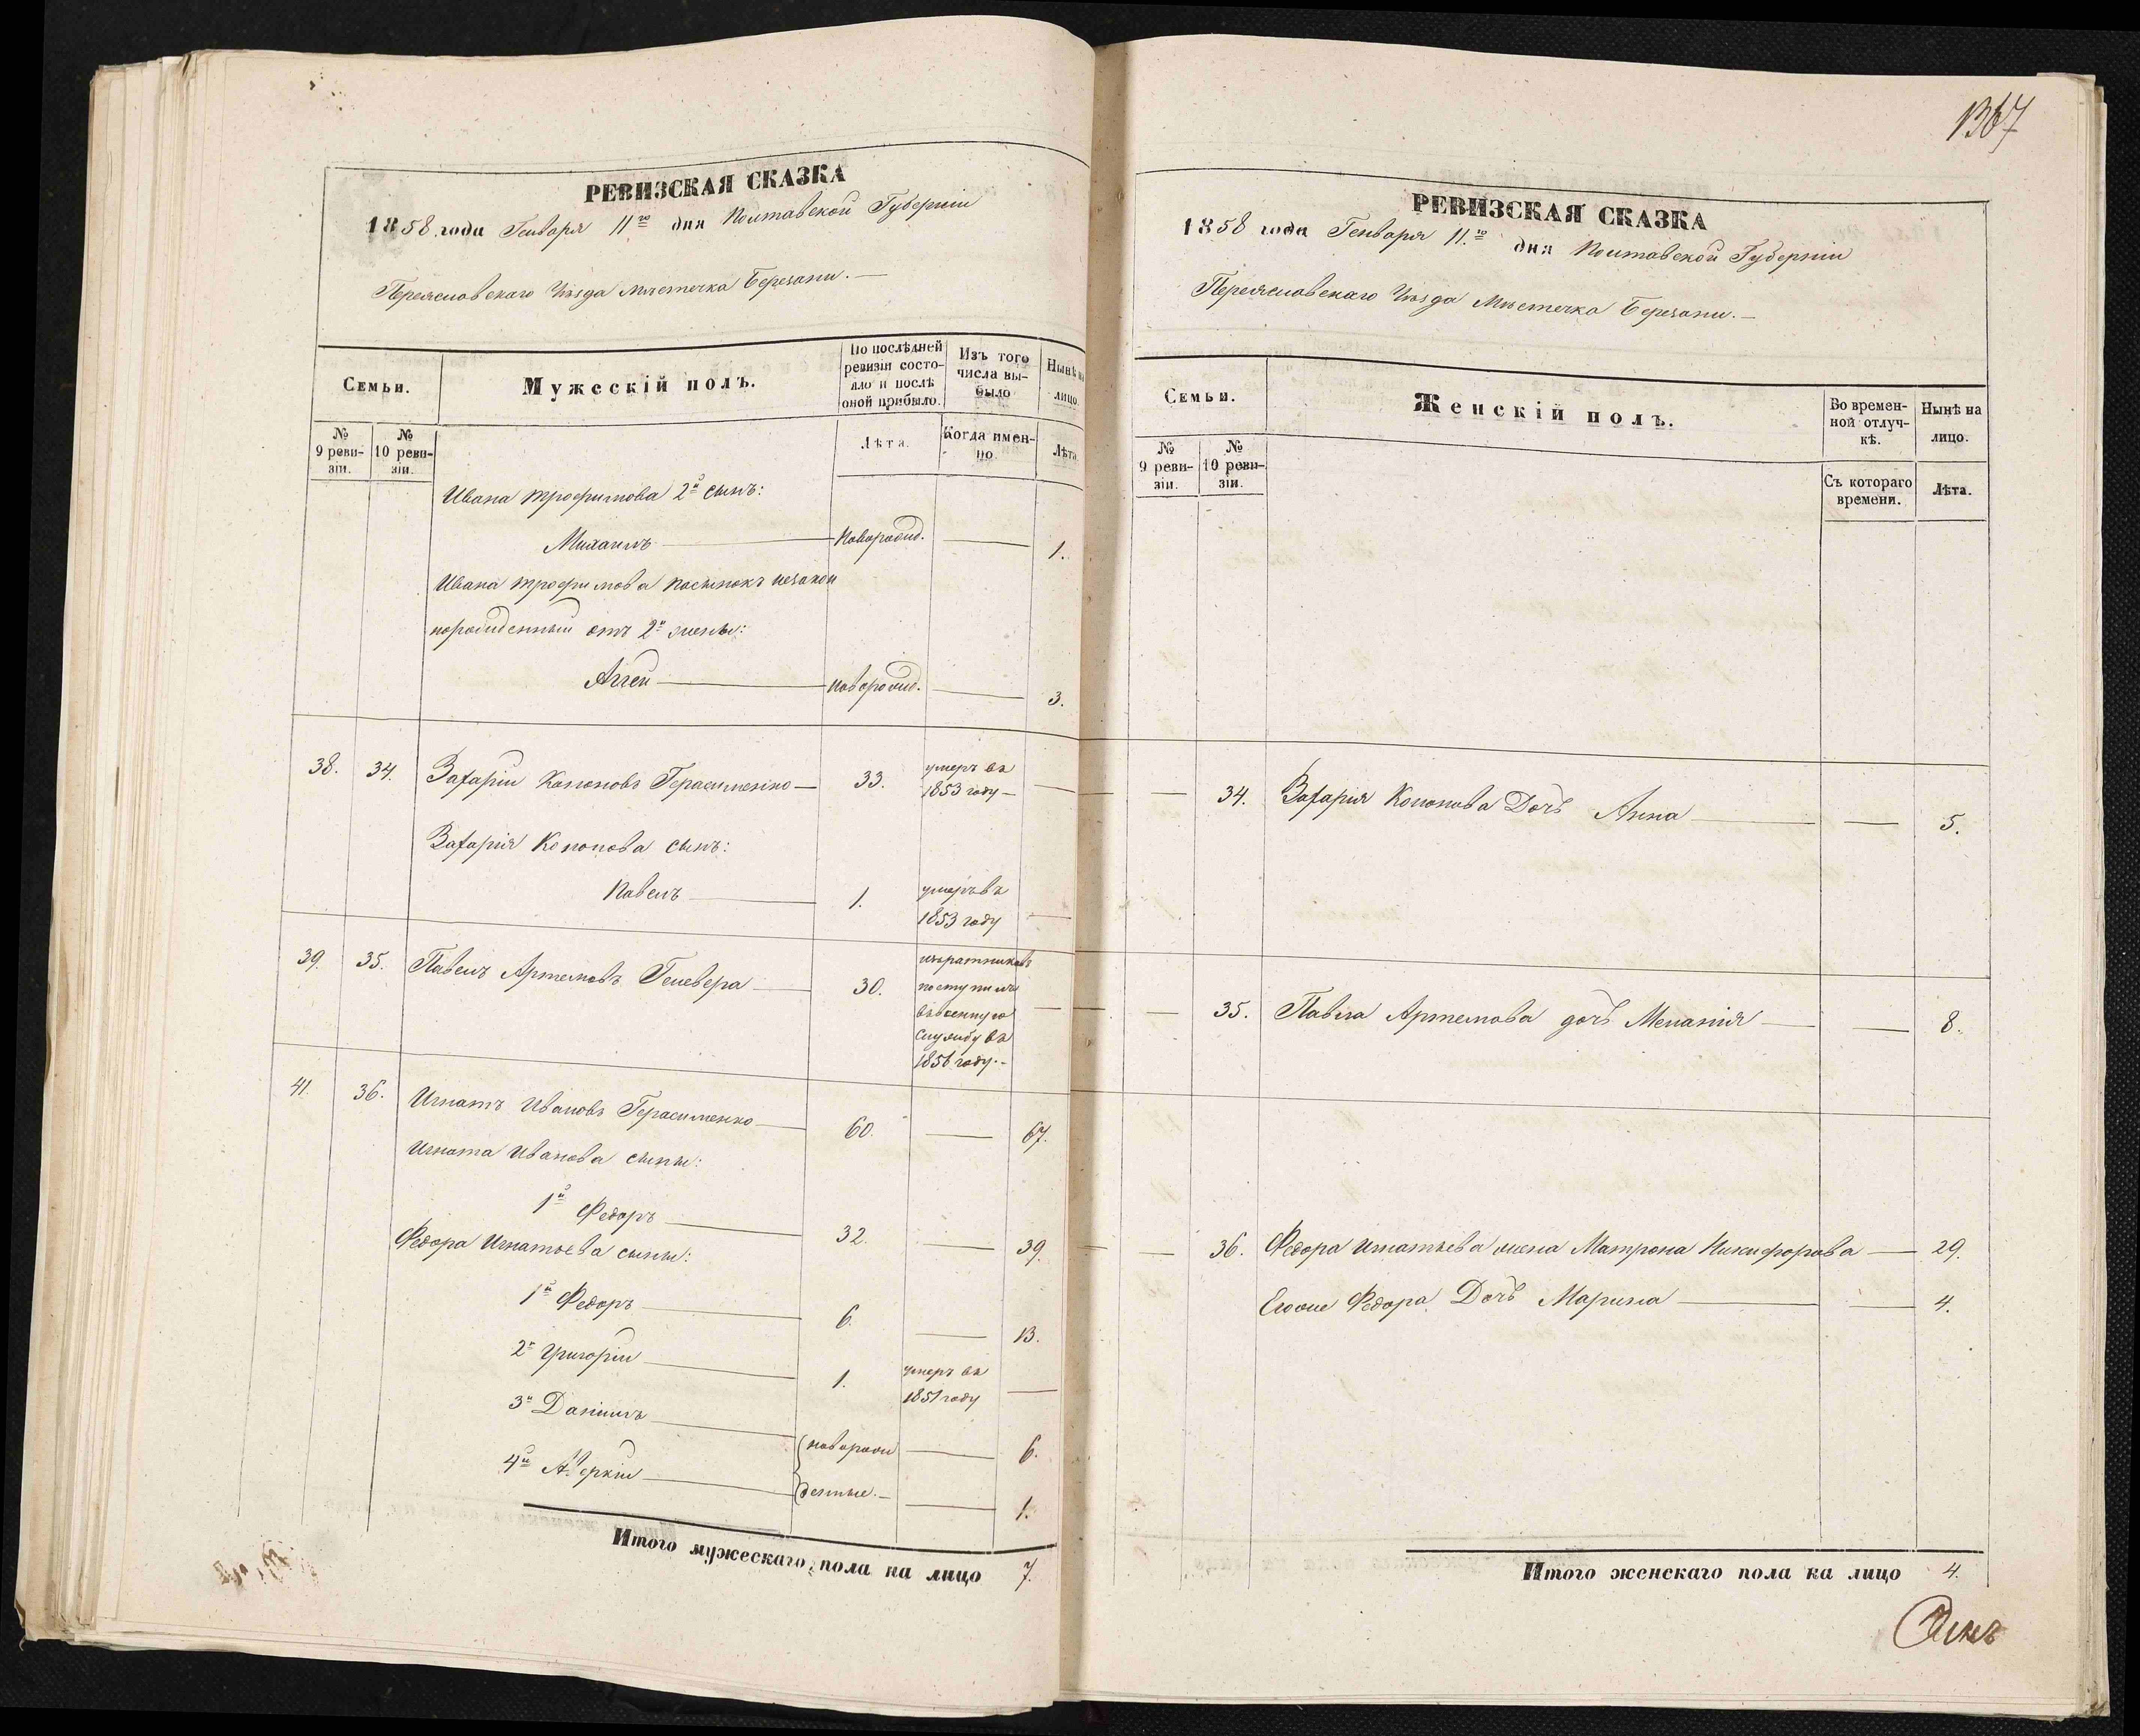 РЕВИЗСКАЯ СКАЗКА
1858 года Генваря 11го дня Полтавской Губерніи
Переяславскаго Уѣзда Мѣстечка Березани.—
Семьи.
Мужескій полъ.
По послѣдней ревизіи состояло и послѣ оной прибыло.
Изъ того числа выбыло
Нынѣ на лицо.
№ 9 ревизіи.
№ 10 ревизіи.
Лѣта.
Когда именно.
Лѣта.
Ивана Трофимова 2й сынъ:
Михаилъ — новорожд. — 1.
Ивана Трофимова пасынокъ незакон
норожденный отъ 2й жены:
Аггей — новорожд. — 3.
38. 34. Захарій Кононовъ Герасименко — 33. умеръ въ 1853 году —
Захарія Кононова сынъ:
Павелъ — 1. умеръ въ 1853 году —
39. 35. Павелъ Артемовъ Гелевера — 30. изъ ратниковъ поступилъ въ военную службу въ 1856 году. —
41. 36. Игнатъ Ивановъ Герасименко — 60. — 67.
Игната Иванова сыны:
1й Федоръ — 32. — 39.
Федора Игнатьева сыны:
1й Федоръ — 6. — 13.
2й Григорій — 1. умеръ въ 1851 году —
3й Даніилъ — новорож — 6.
4й Аверкій — денные. — 1.
Итого мужескаго пола на лицо 7.
1367
РЕВИЗСКАЯ СКАЗКА
1858 года Генваря 11.го дня Полтавской Губерніи
Переяславскаго Уѣзда Мѣстечка Березани.—
Семьи.
Женскій полъ.
Во временной отлучкѣ.
Нынѣ на лицо.
№ 9 ревизіи.
№ 10 ревизіи.
Съ котораго времени.
Лѣта.
— 34. Захарія Кононова Дочь Анна — — 5.
— 35. Павла Артемова дочь Меланія — — 8.
— 36. Федора Игнатьева жена Матрона Никифорова — 29.
Егоже Федора Дочь Марина — — 4.
Итого женскаго пола на лицо 4.